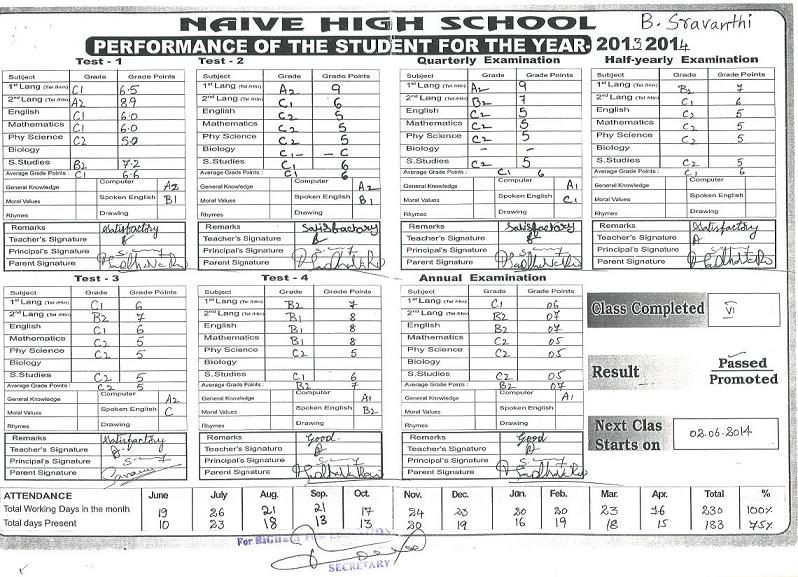 NAIVE HIGH SCHOOL
B. Sravanthi
PERFORMANCE OF THE STUDENT FOR THE YEAR. 2013 2014
Test - 1
Subject Grade Grade Points
1st Lang (Tel /Hin) C1 6.5
2nd Lang (Tel /Hin) A2 8.9
English C1 6.0
Mathematics C1 6.0
Phy Science C2 5.0
Biology
S.Studies B2 7.2
Average Grade Points : C1 6.6
Computer A2
General Knowledge
Spoken English B1
Moral Values
Drawing
Rhymes
Remarks Satisfactory
Teacher's Signature
Principal's Signature
Parent Signature
Test - 2
Subject Grade Grade Points
1st Lang (Tel /Hin) A2 9
2nd Lang (Tel /Hin) C1 6
English C2 5
Mathematics C2 5
Phy Science C2 5
Biology C1 - - C
S.Studies C1 6
Average Grade Points : C1 6
Computer A2
General Knowledge
Spoken English B1
Moral Values
Drawing
Rhymes
Remarks Satisfactory
Teacher's Signature
Principal's Signature
Parent Signature
Quarterly Examination
Subject Grade Grade Points
1st Lang (Tel /Hin) A2 9
2nd Lang (Tel /Hin) B2 7
English C2 5
Mathematics C2 5
Phy Science C2 5
Biology - -
S.Studies C2 5
Average Grade Points : C1 6
Computer A1
General Knowledge
Spoken English C1
Moral Values
Drawing
Rhymes
Remarks Satisfactory
Teacher's Signature
Principal's Signature
Parent Signature
Half-yearly Examination
Subject Grade Grade Points
1st Lang (Tel /Hin) B2 7
2nd Lang (Tel /Hin) C1 6
English C2 5
Mathematics C2 5
Phy Science C2 5
Biology
S.Studies C2 5
Average Grade Points : C1 6
Computer
General Knowledge
Spoken English
Moral Values
Drawing
Rhymes
Remarks Satisfactory
Teacher's Signature
Principal's Signature
Parent Signature
Test - 3
Subject Grade Grade Points
1st Lang (Tel /Hin) C1 6
2nd Lang (Tel /Hin) B2 7
English C1 6
Mathematics C2 5
Phy Science C2 5
Biology
S.Studies C2 5
Average Grade Points : C2 5
Computer A2
General Knowledge
Spoken English C
Moral Values
Drawing
Rhymes
Remarks Satisfactory
Teacher's Signature
Principal's Signature
Parent Signature
Test - 4
Subject Grade Grade Points
1st Lang (Tel /Hin) B2 7
2nd Lang (Tel /Hin) B1 8
English B1 8
Mathematics B1 8
Phy Science C2 5
Biology
S.Studies C1 6
Average Grade Points : B2 7
Computer A1
General Knowledge
Spoken English B2
Moral Values
Drawing
Rhymes
Remarks Good
Teacher's Signature
Principal's Signature
Parent Signature
Annual Examination
Subject Grade Grade Points
1st Lang (Tel /Hin) C1 06
2nd Lang (Tel /Hin) B2 07
English B2 07
Mathematics C2 05
Phy Science C2 05
Biology
S.Studies C2 05
Average Grade Points : B2 07
Computer A1
General Knowledge
Spoken English
Moral Values
Drawing
Rhymes
Remarks Good
Teacher's Signature
Principal's Signature
Parent Signature
Class Completed VI
Result Passed
Promoted
Next Clas
Starts on 02.06.2014
ATTENDANCE June July Aug. Sep. Oct. Nov. Dec. Jan. Feb. Mar. Apr. Total %
Total Working Days in the month 19 26 21 21 17 24 23 20 20 23 16 230 100%
Total days Present 10 23 18 13 13 20 19 16 19 18 15 183 75%
For
SECRETARY